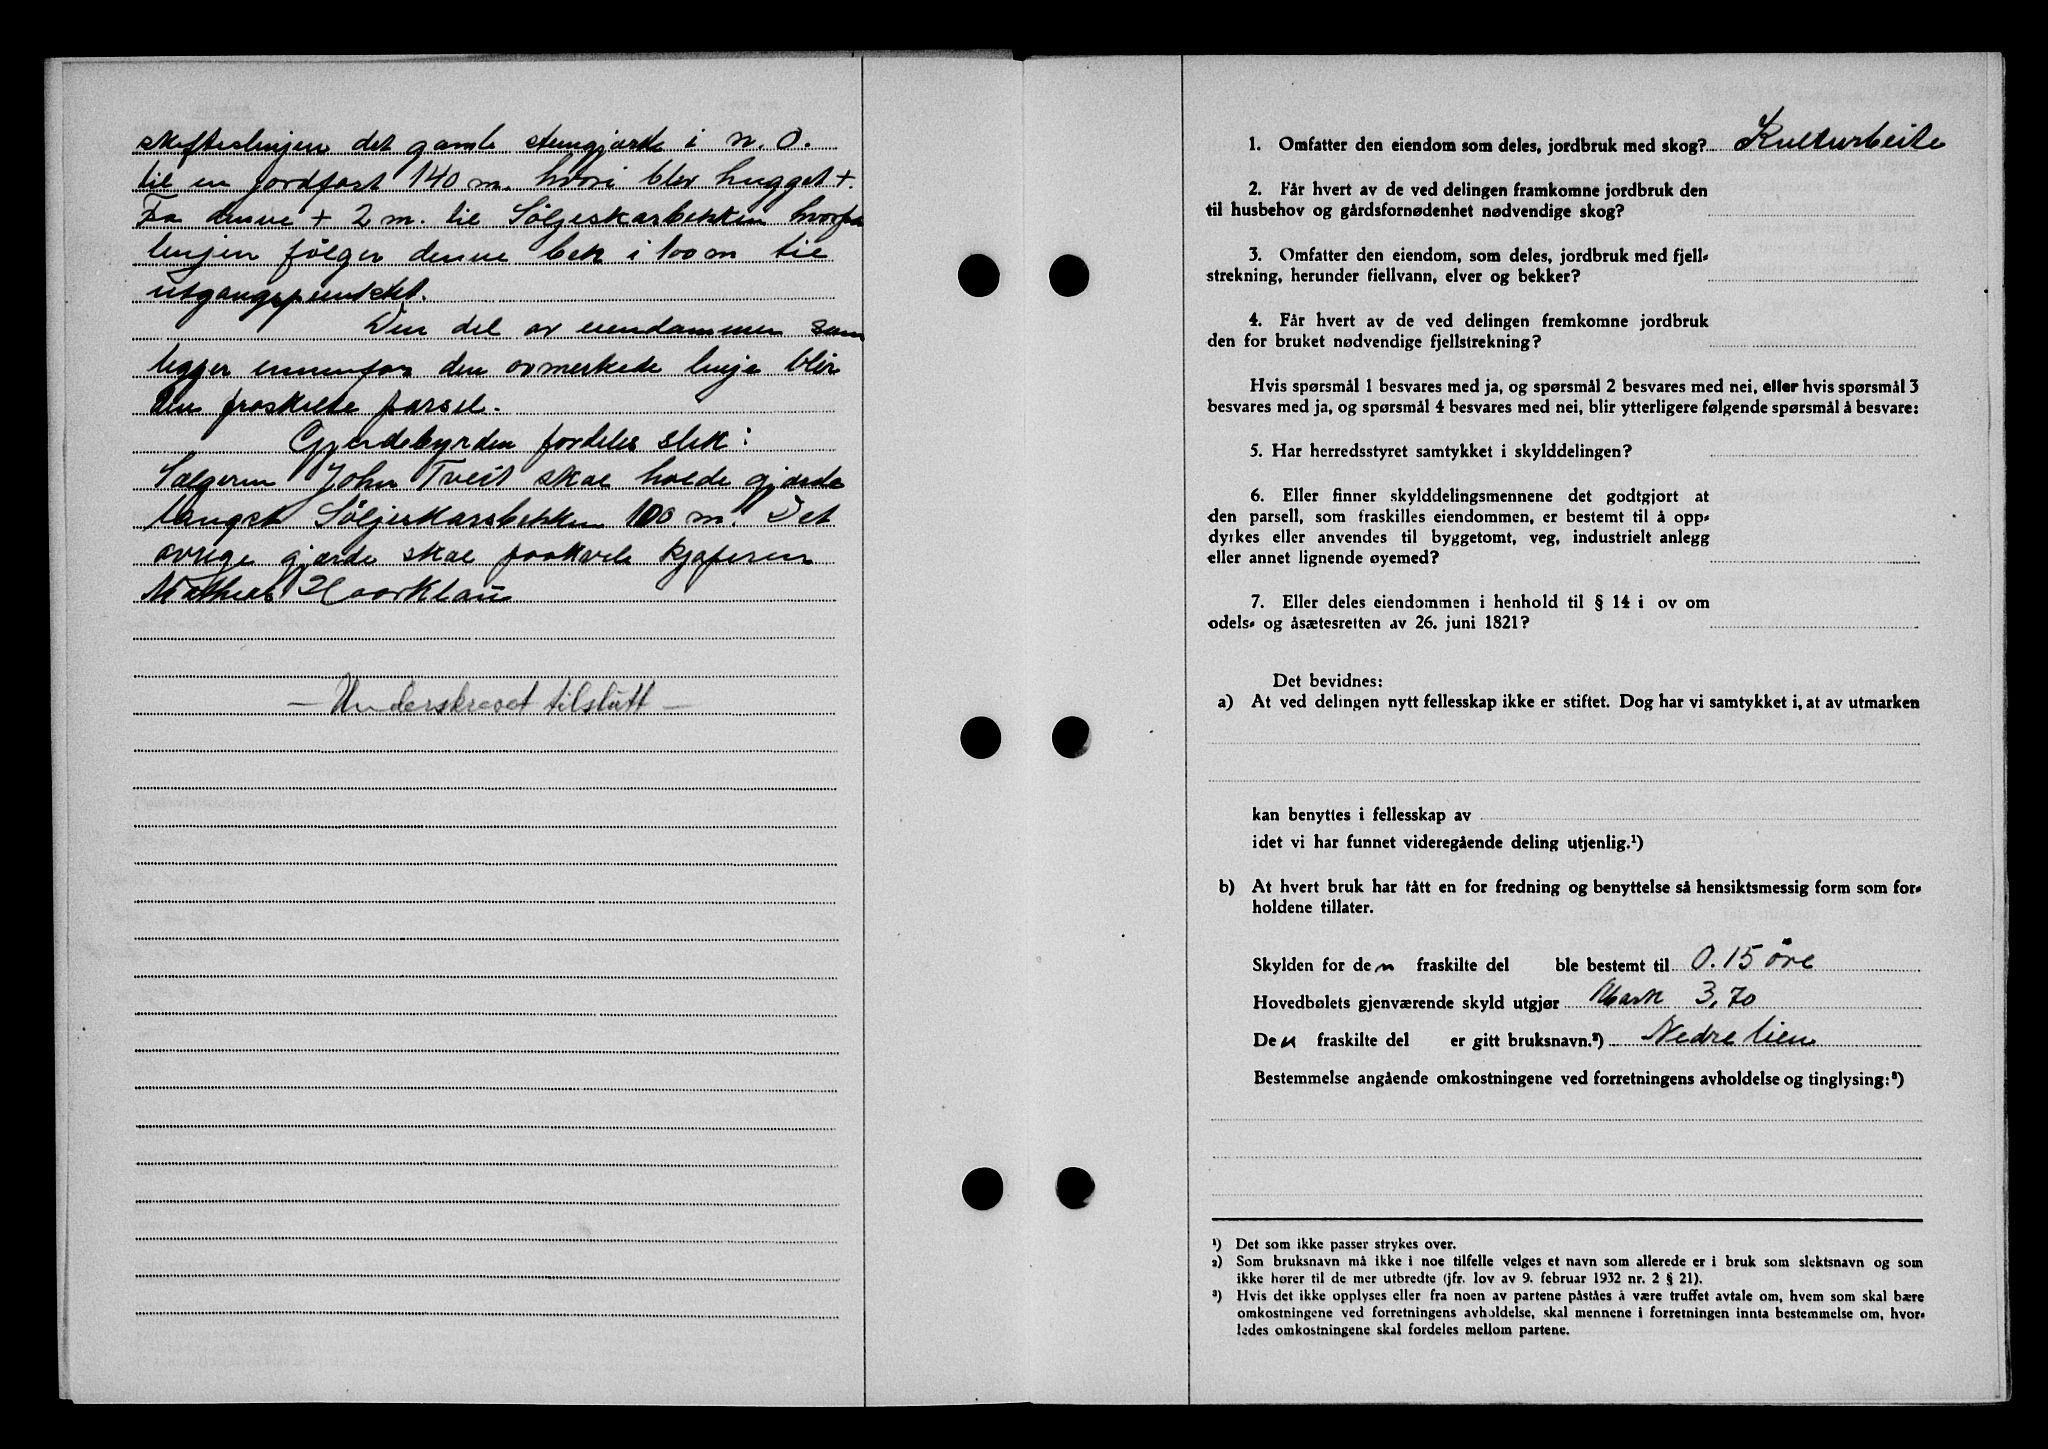 skifteslinjen det gamle stengjærde i n.O.
til en jordfast 140 m. hvori blev hugget +.
Fra denne + 2 m. til Søljeskarbekken hvorfra
linjen følger denne bek i 100 m til
utgangspunktet.
Den del av eiendommen som
ligger innenfor den avmerkede linje blir
den fraskilte parsel.
Gjerdebyrden fordeles slik:
Sælgeren John Tveit skal holde gjærde
langst Søljeskarsbekken 100 m. Det
øvrige gjærde skal paakvile kjøperen
Mathias Haarklau
- Underskrevet tilslutt -
1. Omfatter den eiendom som deles, jordbruk med skog? Kulturbeite
2. Får hvert av de ved delingen framkomne jordbruk den
til husbehov og gårdsfornødenhet nødvendige skog?
3. Omfatter den eiendom, som deles, jordbruk med fjell-
strekning, herunder fjellvann, elver og bekker?
4. Får hvert av de ved delingen fremkomne jordbruk
den for bruket nødvendige fjellstrekning?
Hvis spørsmål 1 besvares med ja, og spørsmål 2 besvares med nei, eller hvis spørsmål 3
besvares med ja, og spørsmål 4 besvares med nei, blir ytterligere følgende spørsmål å besvare:
5. Har herredsstyret samtykket i skylddelingen?
6. Eller finner skylddelingsmennene det godtgjort at
den parsell, som fraskilles eiendommen, er bestemt til å opp-
dyrkes eller anvendes til byggetomt, veg, industrielt anlegg
eller annet lignende øyemed?
7. Eller deles eiendommen i henhold til § 14 i lov om
odels- og åsætesretten av 26. juni 1821?
Det bevidnes:
a) At ved delingen nytt fellesskap ikke er stiftet. Dog har vi samtykket i, at av utmarken
kan benyttes i fellesskap av
idet vi har funnet videregående deling utjenlig.¹)
b) At hvert bruk har fått en for fredning og benyttelse så hensiktsmessig form som for-
holdene tillater.
Skylden for den fraskilte del ble bestemt til 0.15 øre
Hovedbølets gjenværende skyld utgjør Mark 3,70
Den fraskilte del er gitt bruksnavn.²) Nedre lien
Bestemmelse angående omkostningene ved forretningens avholdelse og tinglysing:³)
¹) Det som ikke passer strykes over.
²) Som bruksnavn må ikke i noe tilfelle velges et navn som allerede er i bruk som slektsnavn og som
ikke hører til de mer utbredte (jfr. lov av 9. februar 1932 nr. 2 § 21).
³) Hvis det ikke opplyses eller fra noen av partene påståes å være truffet avtale om, hvem som skal bære
omkostningene ved forretningens avholdelse, skal mennene i forretningen innta bestemmelse om, hvor-
ledes omkostningene skal fordeles mellom partene.